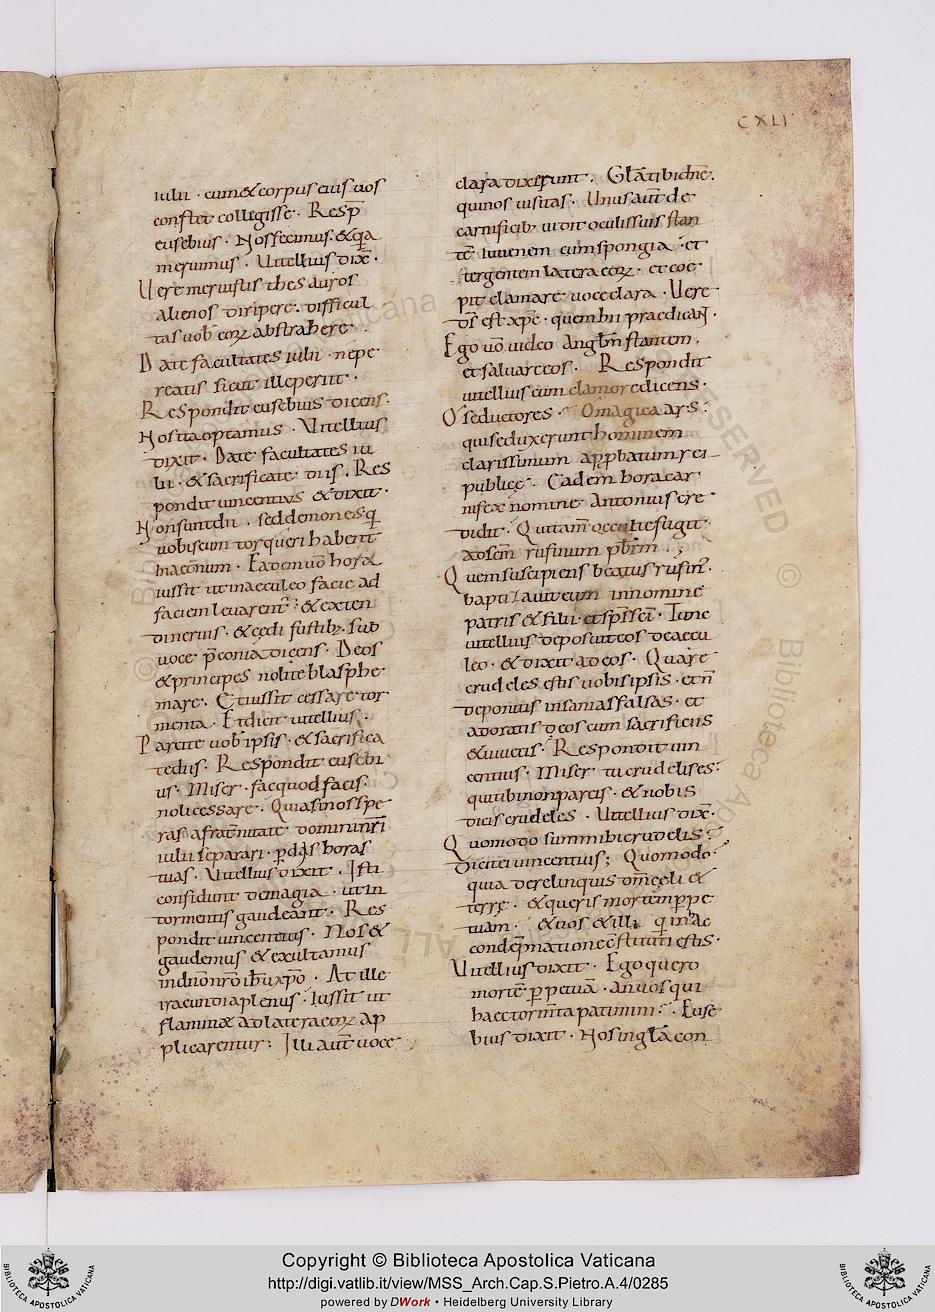 CXLI
iulii · cum & corpus eius uos
constet collegisse · Resp̄
eusebius · Nos fecimus · & q̄a
meruimus · Uitellius dix̄ ·
Uere meruistis thesauros
alienos diripere · difficul
tas uob̄ eoꝝ abstrahere ·
Date facultates iulii · ne pe
reatis sicut ille periit ·
Respondit eusebius dicens ·
Nos ita optamus · Uitellius
dixit · Date facultates iu
lii · & sacrificate diis · Res
pondit uincentius & dixit ·
Non sunt dii · sed demones q̄
uobiscum torqueri habent
in aet̄num · Eadem uō hora
iussit ut in aculeo facie ad
faciem leuarent᷑ · & exten
di neruis · & cędi fustibꝫ · sub
uoce p̄conia dicens · Deos
& principes nolite blasphe
mare · Et iussit cessare tor
menta · Et dicit uitellius ·
Parcite uob̄ ipsis · & sacrifica
te diis · Respondit eusebi
us · Miser · fac quod facis ·
noli cessare · Quia si nos spe
ras a frat̄nitate domini nr̄i
iulii separari · ꝑdis horas
tuas · Uitellius dixit · Isti
confidunt de magia · ut in
tormentis gaudeant · Res
pondit uincentius · Nos &
gaudemus & exultamus
in dn̄o nr̄o ih̄u xp̄o · At ille
iracundia plenus · Iussit ut
flammæ ad latera eoꝝ ap
plicarentur · Illi aut̄ uoce
clara dixerunt · Glā tibi dn̄e ·
qui nos uisitas · Unus aut̄ de
carnificibꝫ uidit oculis suis stan
tē iuuenem cum spongia · et
tergentem latera eoꝝ · et coe
pit clamare uoce clara · Uere
d̄s est xp̄s · quem hii praedicant ·
Ego uō uideo angl̄m stantem ·
et saluare eos · Respondit
uitellius cum clamore dicens ·
O seductores · O magica ars ·
qui seduxerunt hominem
clarissimum app̄batum rei
publicę · Eadem hora car
nifex nomine Antonius cre
didit · Qui tam̄ occulte fugit
ad sc̄m rufinum pb̄rm ·
Quem suscipiens beatus rufin᷒ ·
baptizauit eum in nomine
patris & filii · et sp̄s sc̄i · Tunc
uitellius deposuit eos de acu
leo · & dixit ad eos · Quare
crudeles estis uobis ipsis · et n̄
deponitis insanias falsas · et
adoratis deos cum sacrificiis
& uiuetis · Respondit uin
centius · Miser tu crudelis es ·
qui tibi non parcis · & nobis
dicis crudeles · Uitellius dix̄ ·
Quomodo sum mihi crudelis ·
Dicit ei uincentius ; Quomodo ·
quia derelinquis dn̄m cęli &
terrę · & queris mortem ꝑpe
tuam · & uos & illi q̄ in hac
condēpnatione cōstituti estis ·
Uitellius dixit · Ego quero
mortē ꝑpetuā · an uos qui
haec torm̄ta patimini · Euse
bius dixit · Nos in glā con
Copyright © Biblioteca Apostolica Vaticana
http://digi.vatlib.it/view/MSS_Arch.Cap.S.Pietro.A.4/0285
powered by DWork • Heidelberg University Library